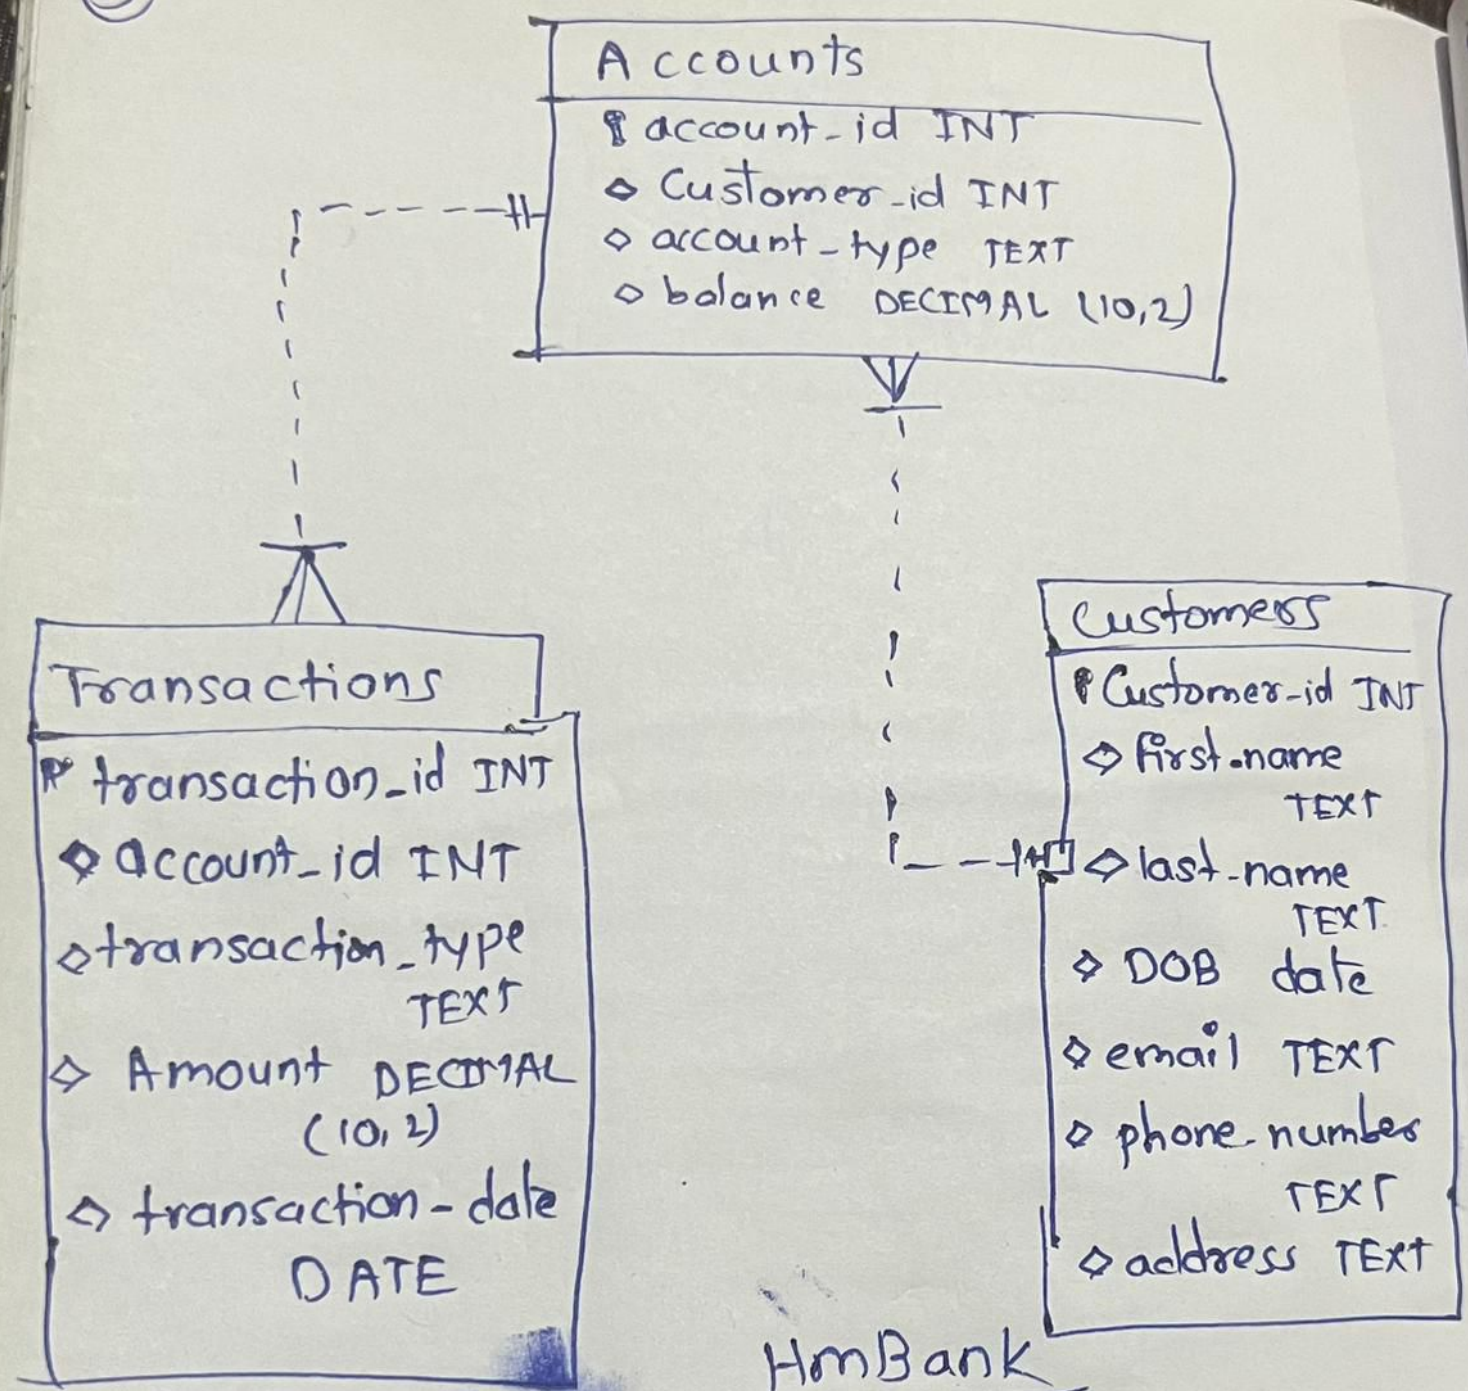 Accounts
account_id INT
Customer_id INT
account_type TEXT
balance DECIMAL (10,2)
Transactions
transaction_id INT
account_id INT
transaction_type
TEXT
Amount DECIMAL
(10,2)
transaction_date
DATE
Customers
Customer_id INT
first_name
TEXT
last_name
TEXT
DOB date
email TEXT
phone_number
TEXT
address TEXT
HmBank